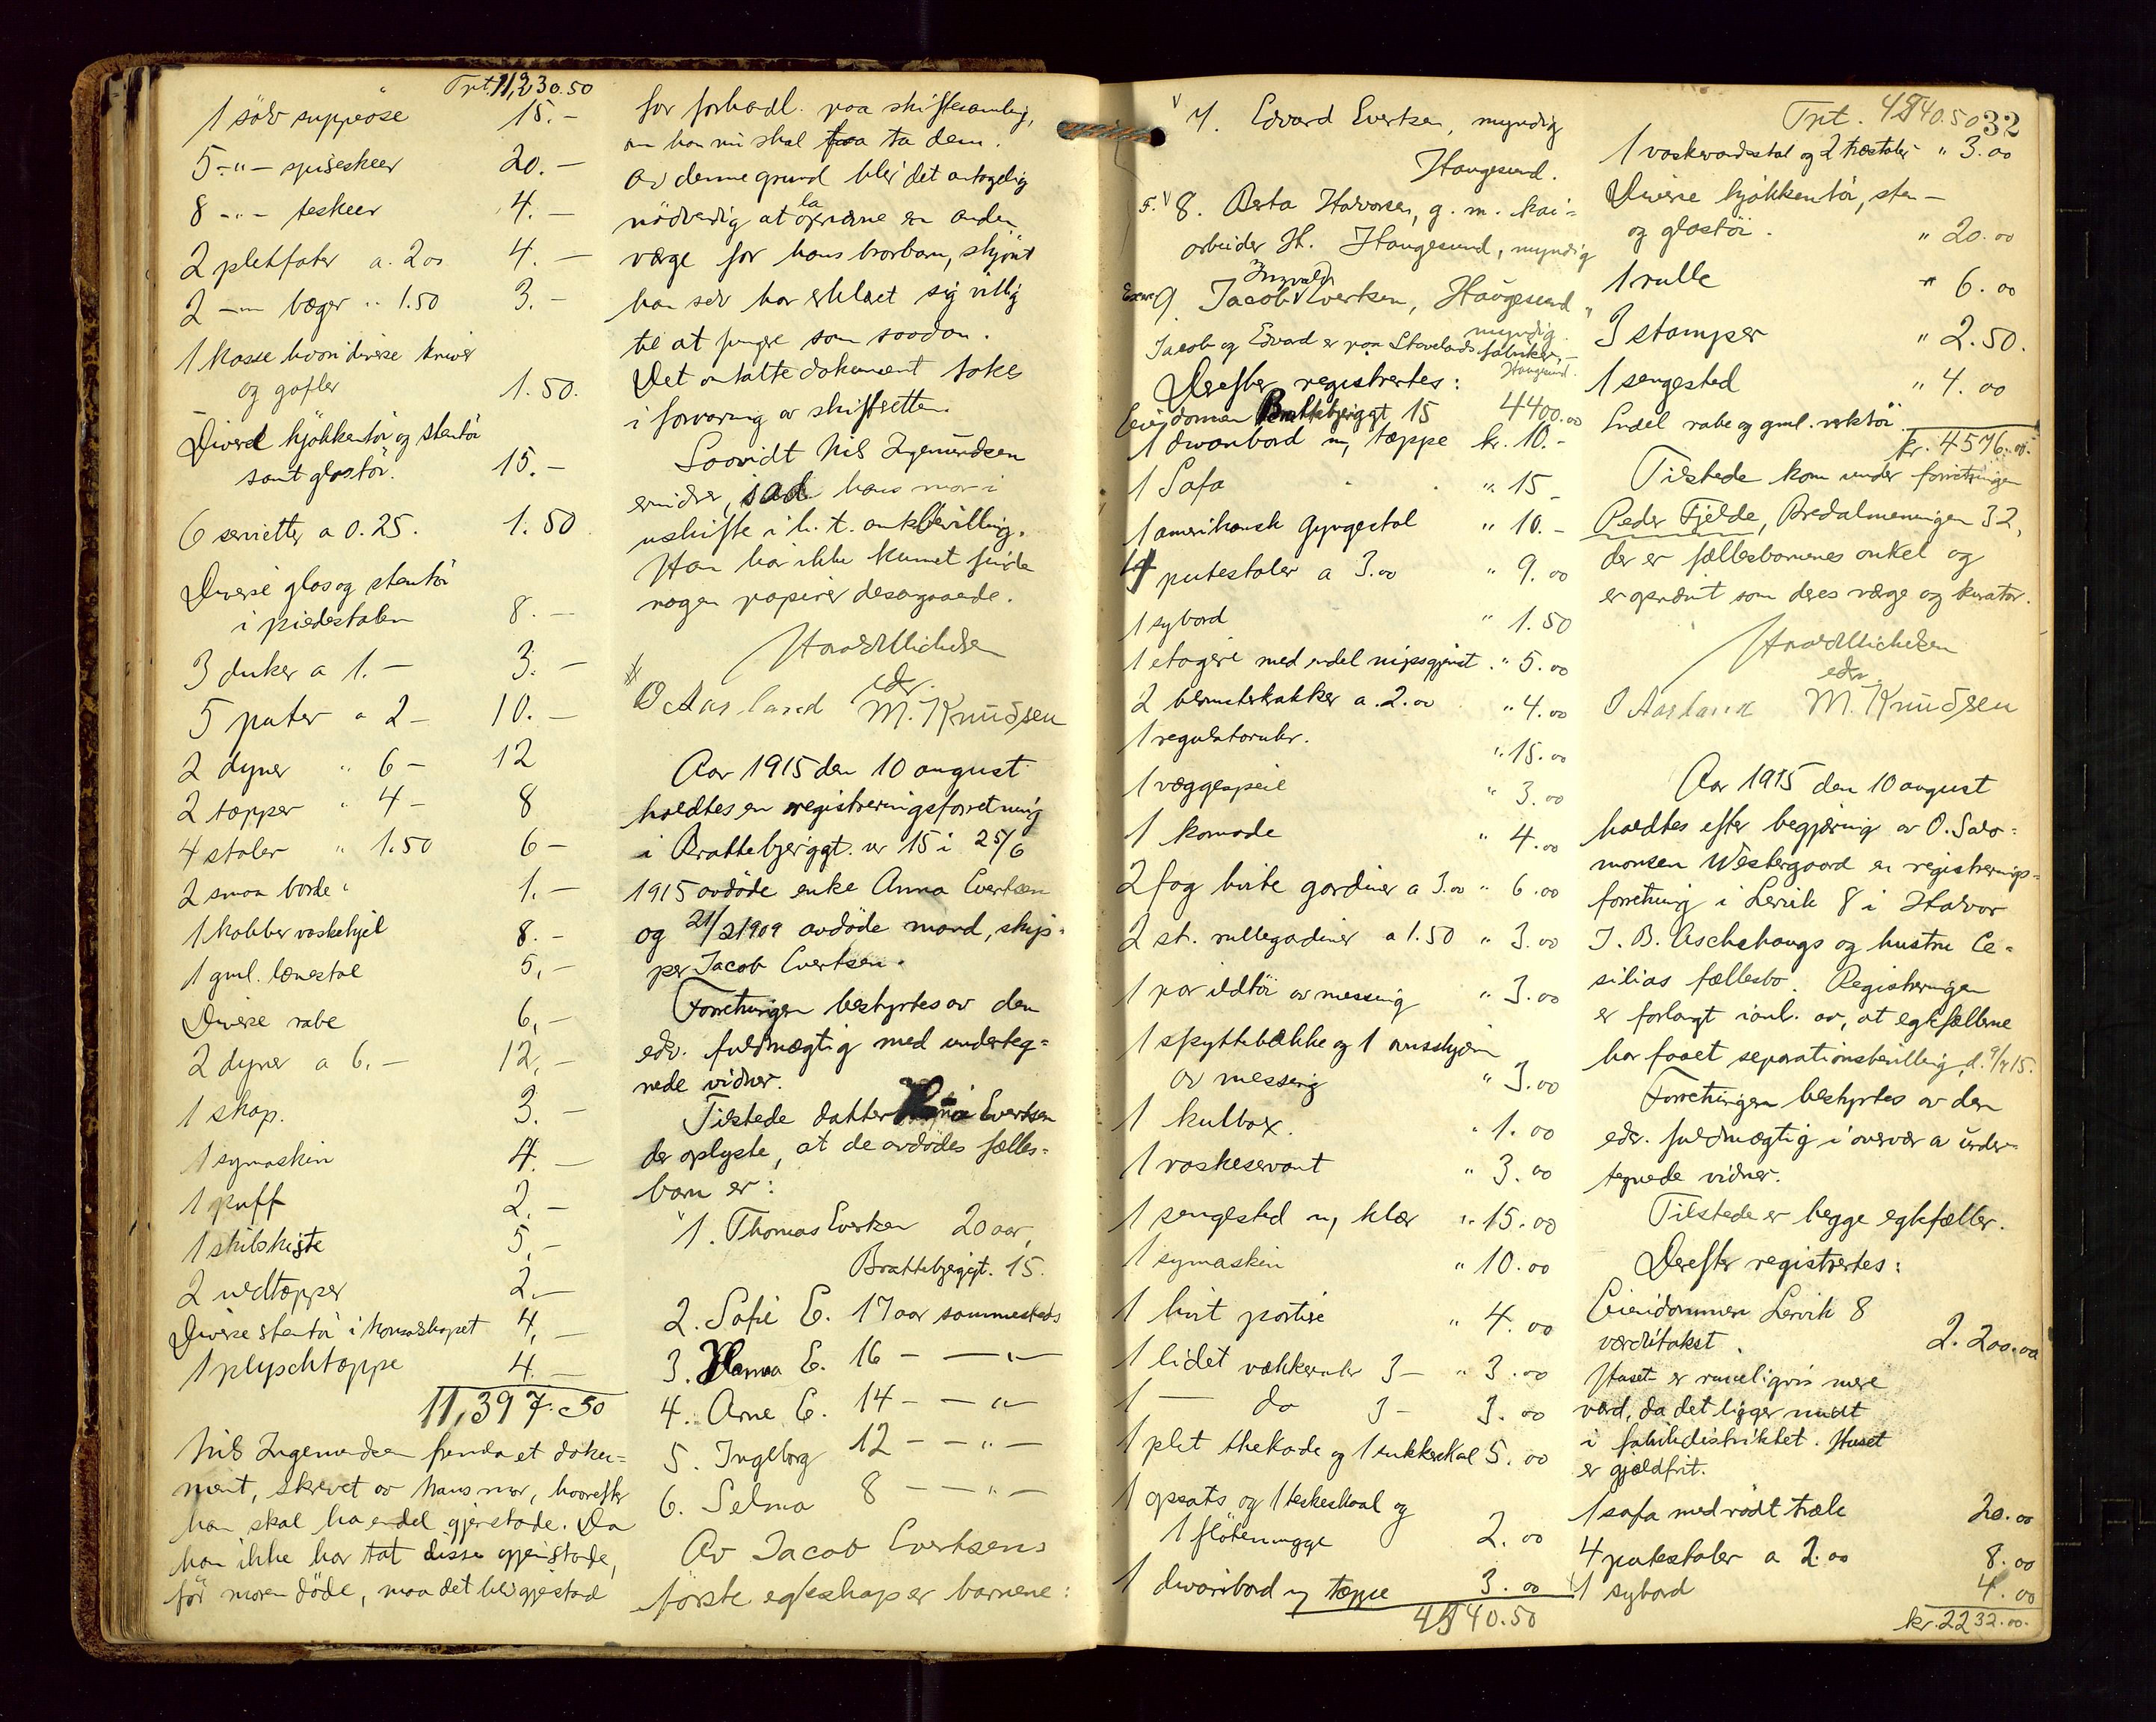 Trpt. 11,230.50
1 sølv suppeøse 15.-
5 -"- spiseskeer 20.-
8 -"- teskeer 4.-
2 pletfater a 2.00 4.-
2 -"- bæger " 1.50 3.-
1 kasse hvori diverse kniver
og gafler 1.50.
Diverse kjøkkentøi og stentøi
samt glastøi. 15.-
6 servietter a 0.25. 1.50
Diverse glas og stentøi
i piedestalen 8.-
3 duker a 1.- 3.-
5 puter a 2- 10.-
2 dyner " 6- 12
2 tæpper " 4- 8
4 stoler " 1.50 6-
2 smaa borde " 1.-
1 kobber vaskekjel 8.-
1 gml. lænestol 5,-
Diverse rabe 6,-
2 dyner a 6.- 12,-
1 skap. 3.-
1 symaskin 4.-
1 puff 2.-
1 skibskiste 5,-
2 uldtæpper 2.-
Diverse stentøi i 4,-
1 plyschtæppe 4.-
11,397.50
Nils Ingemundsen fremla et doku=
ment, skrevet av hans mor, hvorefter
han skal ha endel gjenstande. Da
han ikke har tat disse gjenstande,
før moren døde, maa det bli gjenstand
for forhandl. paa skiftesamling,
om han nu skal faa ta dem.
Av denne grund blir det antagelig
nødvendig at la opnævne en anden
verge for hans brorbarn, skjønt
han selv har erklært sig villig
til at fungere som saadan.
Det omtalte dokument tokes
i forvaring av skifteretten.
Saavidt Nils Ingemundsen
erindrer, sad hans mor i
uskifte i h. t. enkebevilling.
Han har ikke kunnet finde
nogen papirer desangaaende.
Harald Michelsen
edv.
O Aarland M. Knudsen
Aar 1915 den 10 august
holdtes en registreringsforretning
i Brattebjerggt. nr 15 i 25/6
1915 avdøde enke Anna Evertsen
og 21/2 1909 avdøde mand, skip=
per Jacob Evertsen.
Forretningen bestyrtes av den
edv. fuldmægtig med underteg=
nede vidner.
Tilstede datter Evertsen
der oplyste, at de avdødes fælles=
barn er:
1. Thomas Evertsen 20 aar,
Brattebjerggt. 15.
2. Sofie E. 17 aar sammesteds
3. Hanna E. 16 - -"-
4. Arne E. 14 - -"-
5. Ingeborg 12 - -"-
6. Selma 8 - -"-
Av Jacob Evertsens
første egteskap er barnene:
32
7. Edvard Evertsen, myndig
Haugesund.
8. Berta Halvorsen, g. m. kai=
arbeider H. Haugesund, myndig
9. Jacob Ingvald Evertsen, Haugesund
myndig
Jacob og Edvard er paa Stavelands fabrikker,
Haugesund.
Derefter registrertes:
Eiendommen Brattebjerggt 15 4400.00
1 divanbord m, tæppe kr. 10.-
1 Sofa " 15-
1 amerikansk gyngestol " 10.-
4 putestoler a 3.00 " 9.00
1 sybord " 1.50
1 etagere med endel nipsgjenst. " 5.00
2 blomsterkrakker a. 2.00 " 4.00
1 regulatoruhr. " 15.00
1 væggespeil " 3.00
1 komode " 4.00
2 fag hvite gardiner a 3.00 " 6.00
2 st. rullegardiner a 1.50 " 3.00
1 par ildtøi av messing " 3.00
1 spyttebakke og 1 ovnsskjærm
av messing " 3.00
1 kulbox. " 1.00
1 vaskeservant " 3.00
1 sengested m, klær " 15.00
1 symaskin " 10.00
1 hvit portiere " 4.00
1 lidet vækkeruhr 3- " 3.00
1 - do 3- 3.00
1 plet thekade og 1 sukkerskal 5.00
1 opsats og 1 kakeskaal og
1 fløtemugge 2.00
1 divanbord m tæppe 3.00
4540.50
Trpt. 4540.50
1 vaskevandsstol og 2 træstoler " 3.00
Diverse kjøkkentøi, sten-
og glastøi. " 20.00
1 rulle " 6.00
3 stamper " 2.50.
1 sengested " 4.00
Endel rabe og gml. verktøi.
kr. 4576.00.
Tilstede kom under forretningen
Peder Fjelde, Bredalmenningen 32,
der er fællesbarnenes onkel og
er opnævnt som deres verge og kurator.
Harald Michelsen
edv.
O Aarland M. Knudsen
Aar 1915 den 10 august
holdtes efter begjæring av O. Salo=
monsen Westergaard en registrerings=
forretning i Lervik 8 i Halvor
J. B. Aschehaugs og hustru Ce=
silias fællesbo. Registreringen
er forlangt i anl. av, at egtefællerne
har faaet separationsbevilling d. 9/4 15.
Forretningen bestyrtes av den
edv. fuldmægtig i overvær a under=
tegnede vidner.
Tilstede er begge egtefæller.
Derefter registrertes:
Eiendommen Lervik 8
værditakst. 2.200.00
Huset er rimeligvis mere
værd, da det ligger midt
i fabrikdistriktet. Huset
er gjældfrit.
1 sofa med rødt træk 20.00
4 putestoler a 2.00 8.00
1 sybord 4.00
kr. 2232.00.